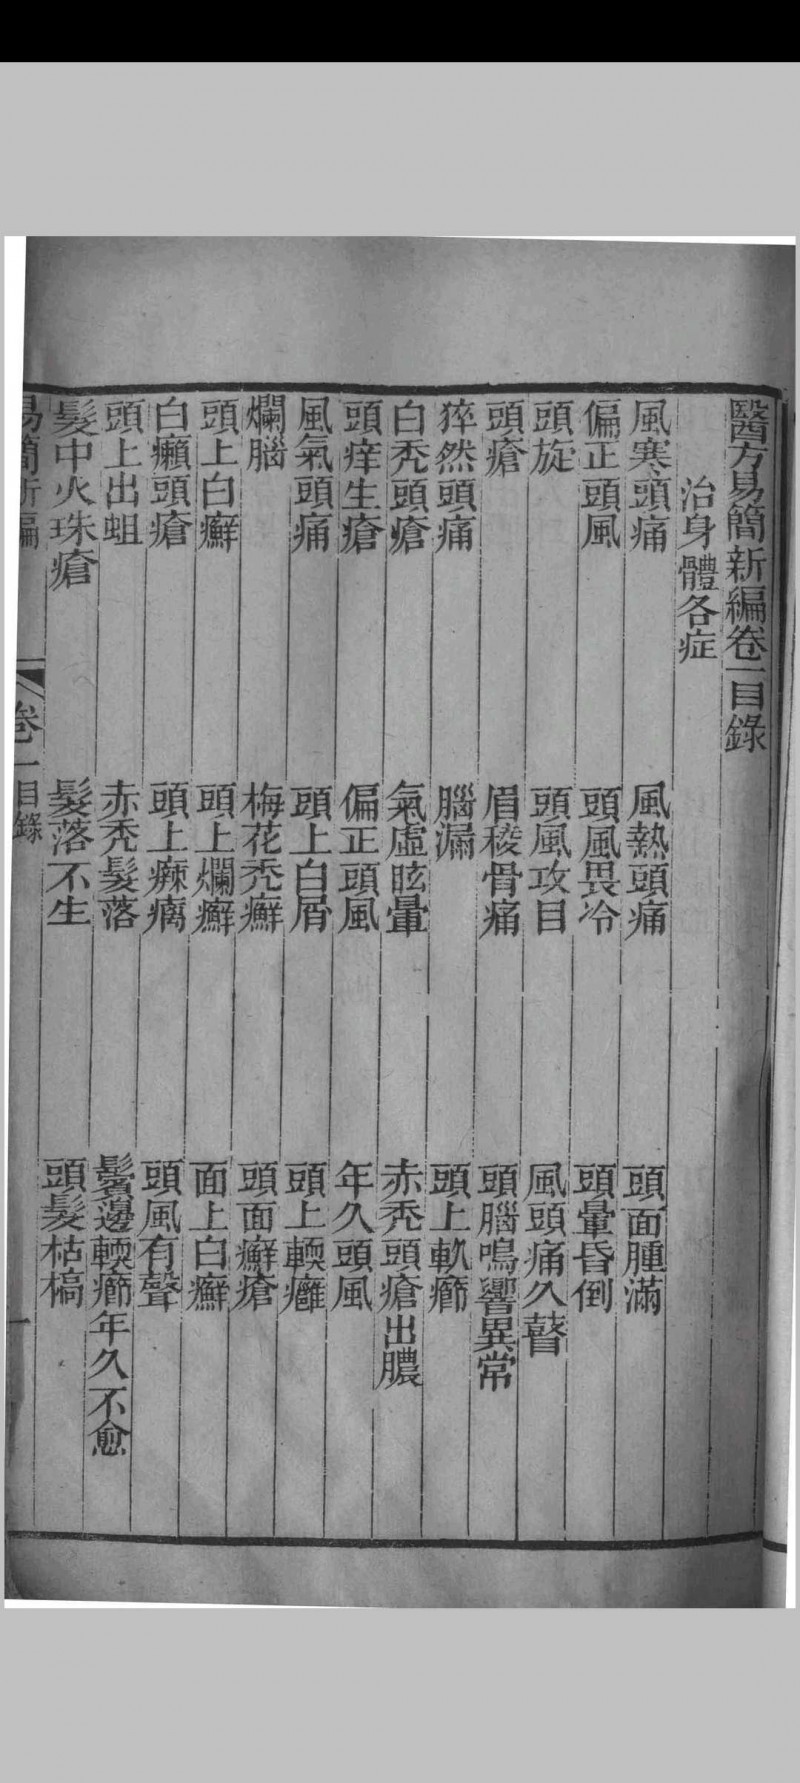 醫方易簡新編卷一目錄
治身體各症
風寒頭痛 風熱頭痛 頭面腫滿
偏正頭風 頭風畏冷 頭暈昏倒
頭旋 頭風攻目 風頭痛久瞽
頭瘡 眉稜骨痛 頭腦鳴響異常
猝然頭痛 腦漏 頭上軌癤
白禿頭瘡 氣虛眩暈 赤禿頭瘡出膿
頭痒生瘡 偏正頭風 年久頭風
風氣頭痛 頭上白屑 頭上輭癰
爛腦 梅花禿癬 頭面癬瘡
頭上白癬 頭上爛癬 面上白癬
白癩頭瘡 頭上瘌瘑 頭風有聲
頭上出蛆 赤禿髮落 鬢邊輭癤年久不愈
髮中火珠瘡 髮落不生 頭髮枯槁
易簡新編 卷一目錄 一